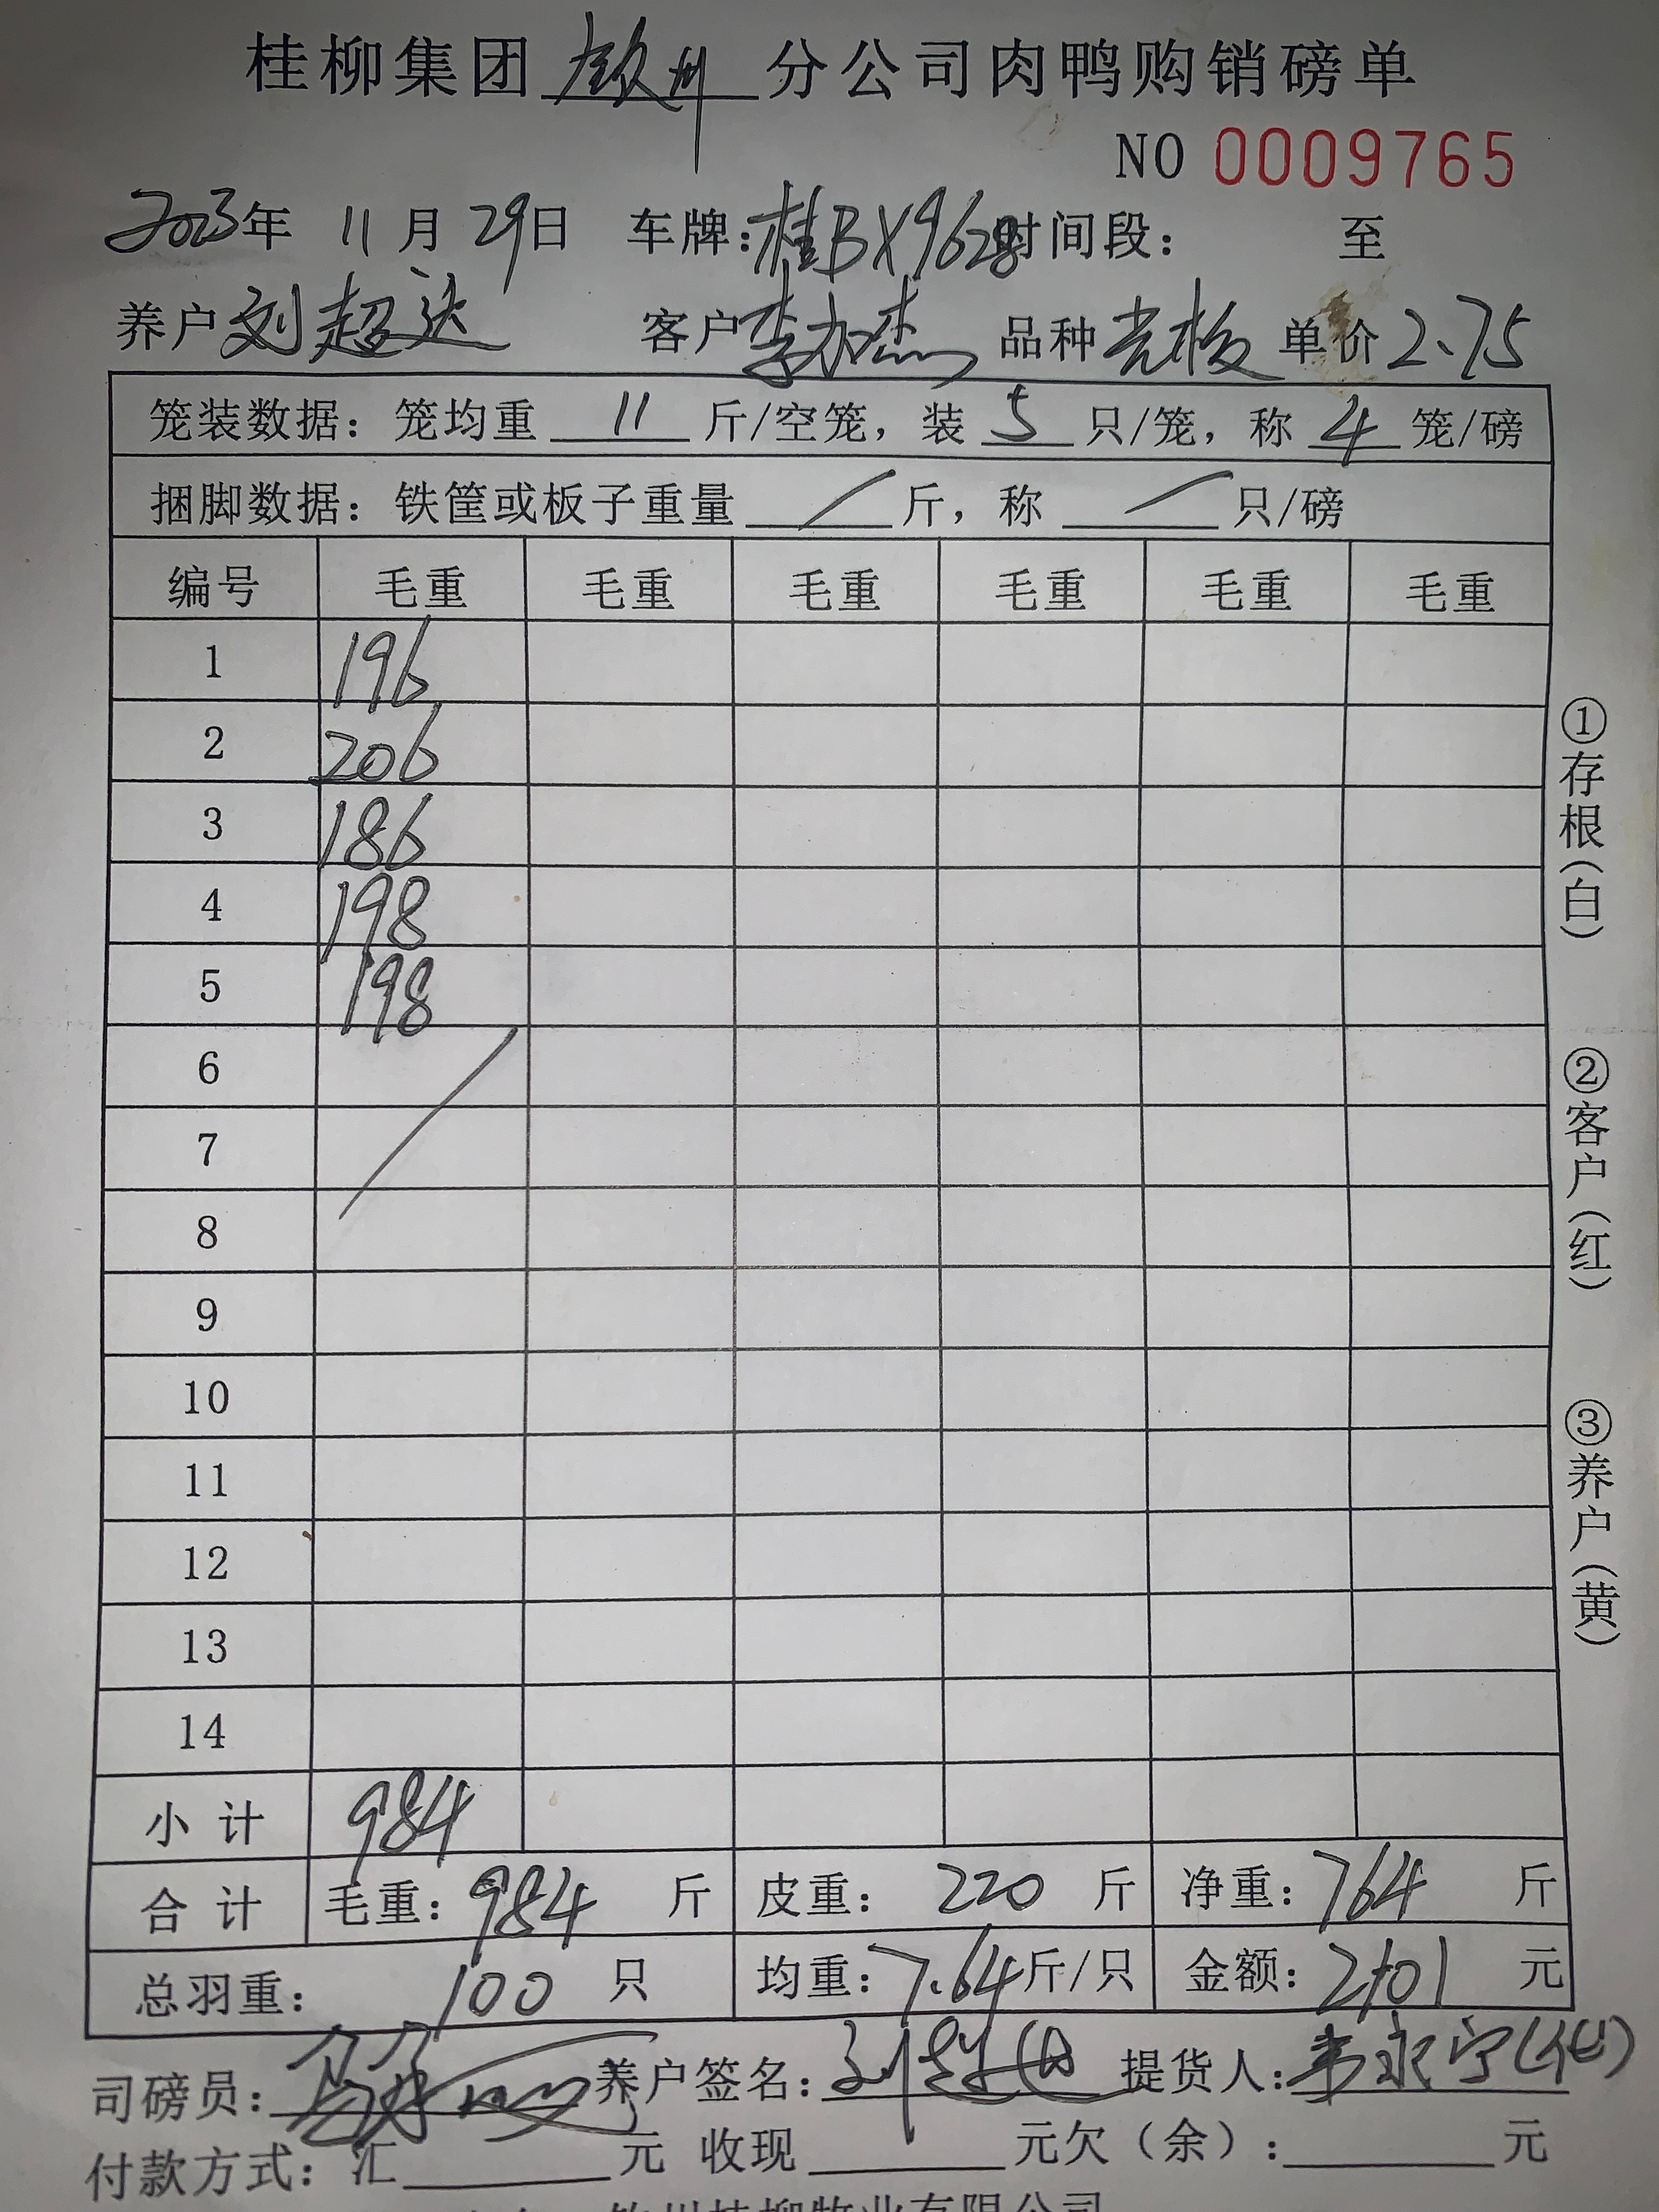 桂柳集团 钦州 分公司肉鸭购销磅单
NO 0009765
2023年 11月 29日 车牌：桂BX9628 时间段： 至
养户 刘超达 客户 李加杰 品种 光板 单价 2.75
笼装数据：笼均重 11 斤/空笼，装 5 只/笼，称 4 笼/磅
捆脚数据：铁筐或板子重量 / 斤，称 / 只/磅
编号 毛重 毛重 毛重 毛重 毛重 毛重
1 196
2 206
3 186
4 198
5 198
6
7
8
9
10
11
12
13
14
小计 984
合计 毛重：984 斤 皮重：220 斤 净重：764 斤
总羽重：100 只 均重：7.64 斤/只 金额：2101 元
司磅员： 养户签名：刘超达 提货人：韦永宁(代)
付款方式：汇 元 收现 元欠（余）： 元
钦州桂柳牧业有限公司
①存根（白）
②客户（红）
③养户（黄）